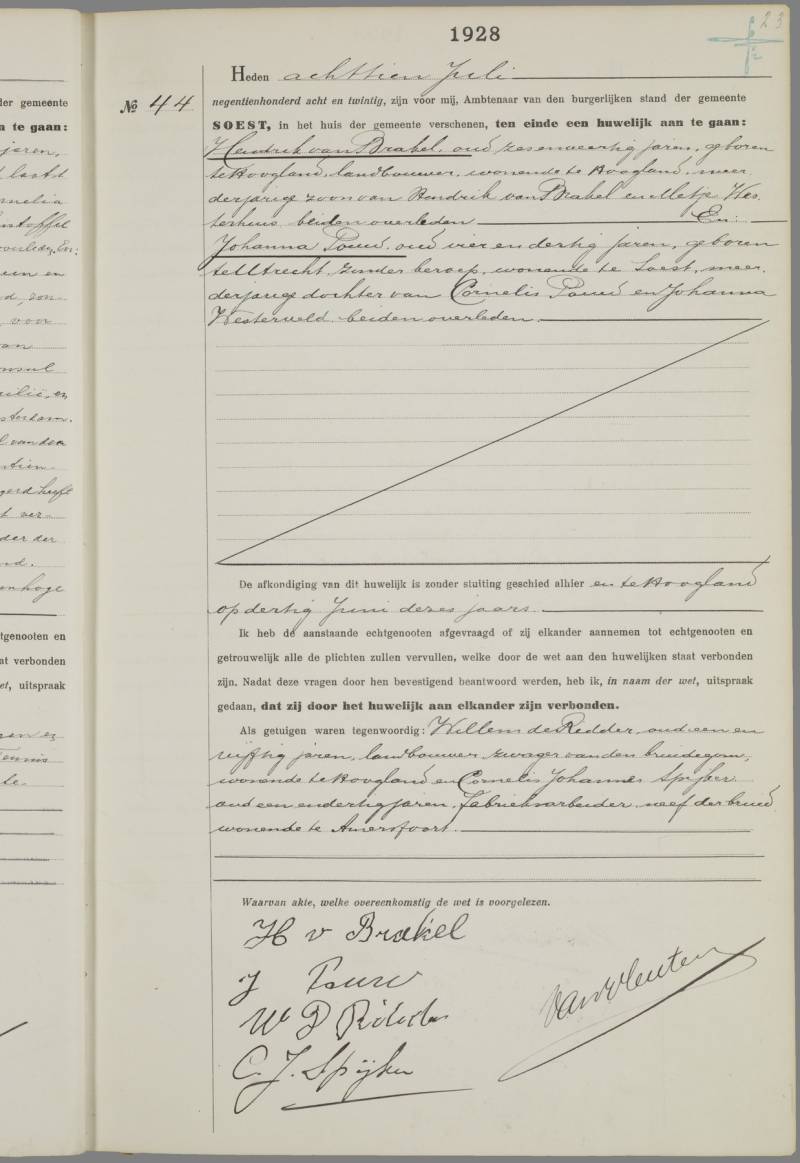 1928
23
Heden achttien Juli
№ 44
negentienhonderd acht en twintig, zijn voor mij, Ambtenaar van den burgerlijken stand der gemeente
SOEST, in het huis der gemeente verschenen, ten einde een huwelijk aan te gaan:
Hendrik van Brakel, oud zesenveertig jaren, geboren
te Hoogland, landbouwer, wonende te Hoogland, meer
derjarige zoon van Hendrik van Brakel en Metje Wes
terhuis beiden overleden En:
Johanna Pouw, oud vier en dertig jaren, geboren
te Utrecht, zonder beroep, wonende te Soest, meer
derjarige dochter van Cornelis Pouw en Johanna
Westerveld beiden overleden.
De afkondiging van dit huwelijk is zonder stuiting geschied alhier en te Hoogland
op dertig Juni dezes jaars.
Ik heb de aanstaande echtgenooten afgevraagd of zij elkander aannemen tot echtgenooten en
getrouwelijk alle de plichten zullen vervullen, welke door de wet aan den huwelijken staat verbonden
zijn. Nadat deze vragen door hen bevestigend beantwoord werden, heb ik, in naam der wet, uitspraak
gedaan, dat zij door het huwelijk aan elkander zijn verbonden.
Als getuigen waren tegenwoordig: Willem de Ridder, oud een en
vijftig jaren, landbouwer, zwager van den bruidegom,
wonende te Hoogland en Cornelis Johannes Spijker
oud een en dertig jaren, fabrieksarbeider, neef der bruid
wonende te Amersfoort.
Waarvan akte, welke overeenkomstig de wet is voorgelezen.
H v Brakel
J Pouw
W D Ridder
C. J. Spijker